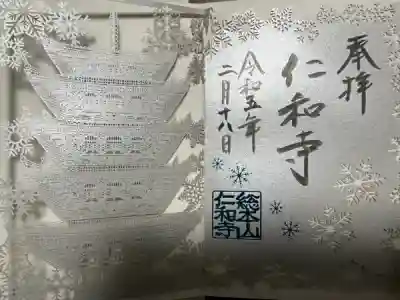 奉拝
仁和寺
令和五年
二月十八日
総本山
仁和寺